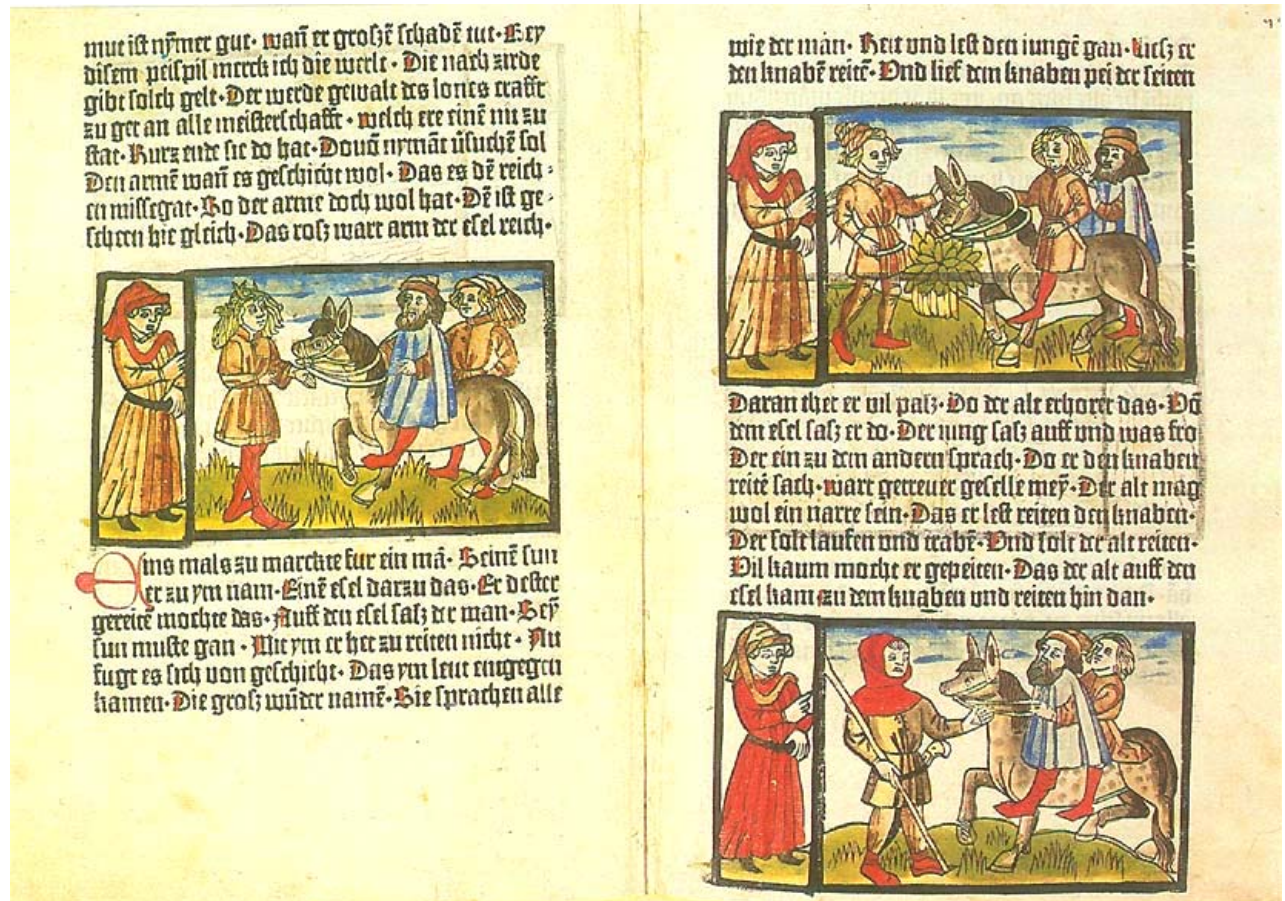 mut ist nỹmer gut· wañ er groſzē ſchadē tut· Bey
diſem peiſpil merck ich die werlt · Die nach zirde
gibt ſolch gelt·Der werde gewalt des lones crafft
zu get an alle meiſterſchafft · welch ere einē nu zu
ſtat·Kurz ende ſie do hat·Douō nymāt ūſuchē ſol
Den armē wañ es geſchicht wol· Das es dē reich⸗
en miſſegat·So der arme doch wol hat·Dē iſt ge⸗
ſcheen hie gleich·Das roſz wart arm der eſel reich·
Eins mals zu marckte fur ein mā· Seinē ſun
er zu ym nam·Einē eſel darzu das·Er deſter
gereitē mochte das·Auff den eſel ſaſz der man·Seỹ
ſun muſte gan · Mit ym er het zu reiten nicht · Nu
fugt es ſich von geſchicht·Das ym leut engegen
kamen·Die groſz wūder namē·Sie ſprachen alle
wie der man· Reit vnd leſt den iungē gan·Lieſz er
den knabē reitē·Vnd lief dem knaben pei der ſeiten
Daran thet er vil paſz·Do der alt erhoret das·Vō
dem eſel ſaſz er do·Der iung ſaſz auff vnd was fro
Der ein zu dem andern ſprach·Do er den knaben
reitē ſach·wart getreuer geſelle meỹ·Der alt mag
wol ein narre ſein·Das er leſt reiten den knaben·
Der ſolt laufen vnd trabē·Vnd ſolt der alt reiten·
Vil kaum mocht er gepeiten·Das der alt auff den
eſel kam zu dem knaben vnd reiten hin dan·